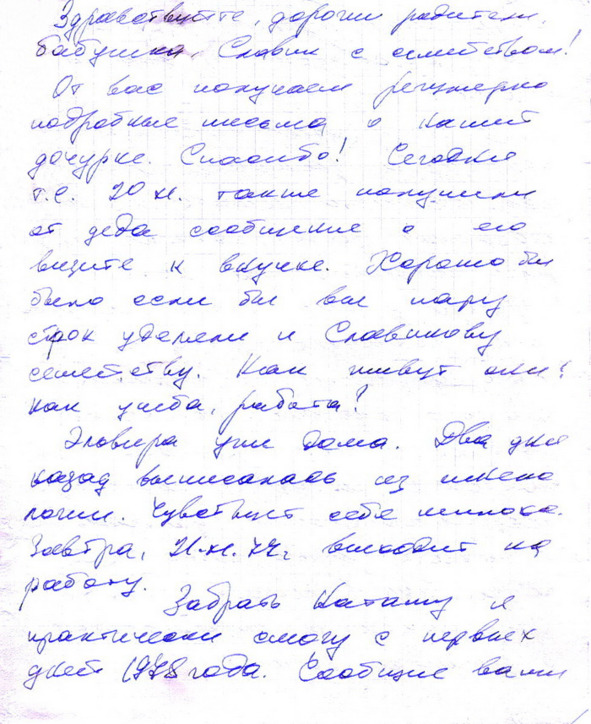 Здравствуйте, дорогие родители,
бабушка, Славик с семейством!
От вас получаем регулярно
подробные письма о нашей
дочурке. Спасибо! Сегодня
т.е. 20 н. также получили
от деда сообщение о его
визите к внучке. Хорошо бы
было если бы вы пару
строк уделили и Славикову
семейству. Как живут они?
как учеба, работа?
Эльвира уже дома. Два дня
назад выписалась из гинеко
логии. Чувствует себя неплохо.
Завтра, 21.н. 77г. выходит на
работу.
Забрать Наташу я
практически смогу с первых
дней 1978 года. Сообщие вами